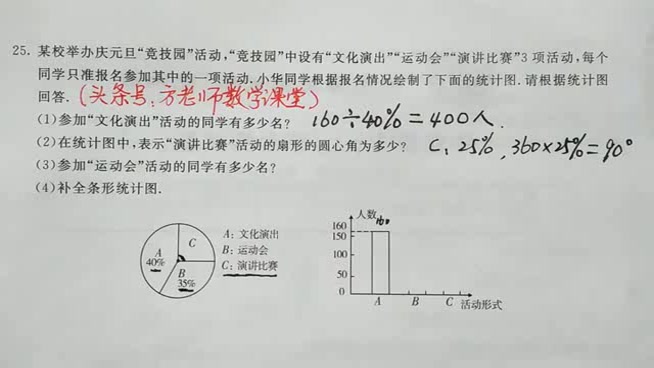 25. 某校举办庆元旦“竞技园”活动,“竞技园”中设有“文化演出”“运动会”“演讲比赛”3 项活动,每个
同学只准报名参加其中的一项活动.小华同学根据报名情况绘制了下面的统计图.请根据统计图
回答.(头条号:方老师数学课堂)
(1)参加“文化演出”活动的同学有多少名? 160÷40%=400人.
(2)在统计图中,表示“演讲比赛”活动的扇形的圆心角为多少? C: 25%, 360×25%=90°
(3)参加“运动会”活动的同学有多少名?
(4)补全条形统计图.
A
40%
B
35%
C
A: 文化演出
B: 运动会
C: 演讲比赛
人数
160
160
150
100
50
0
A B C 活动形式